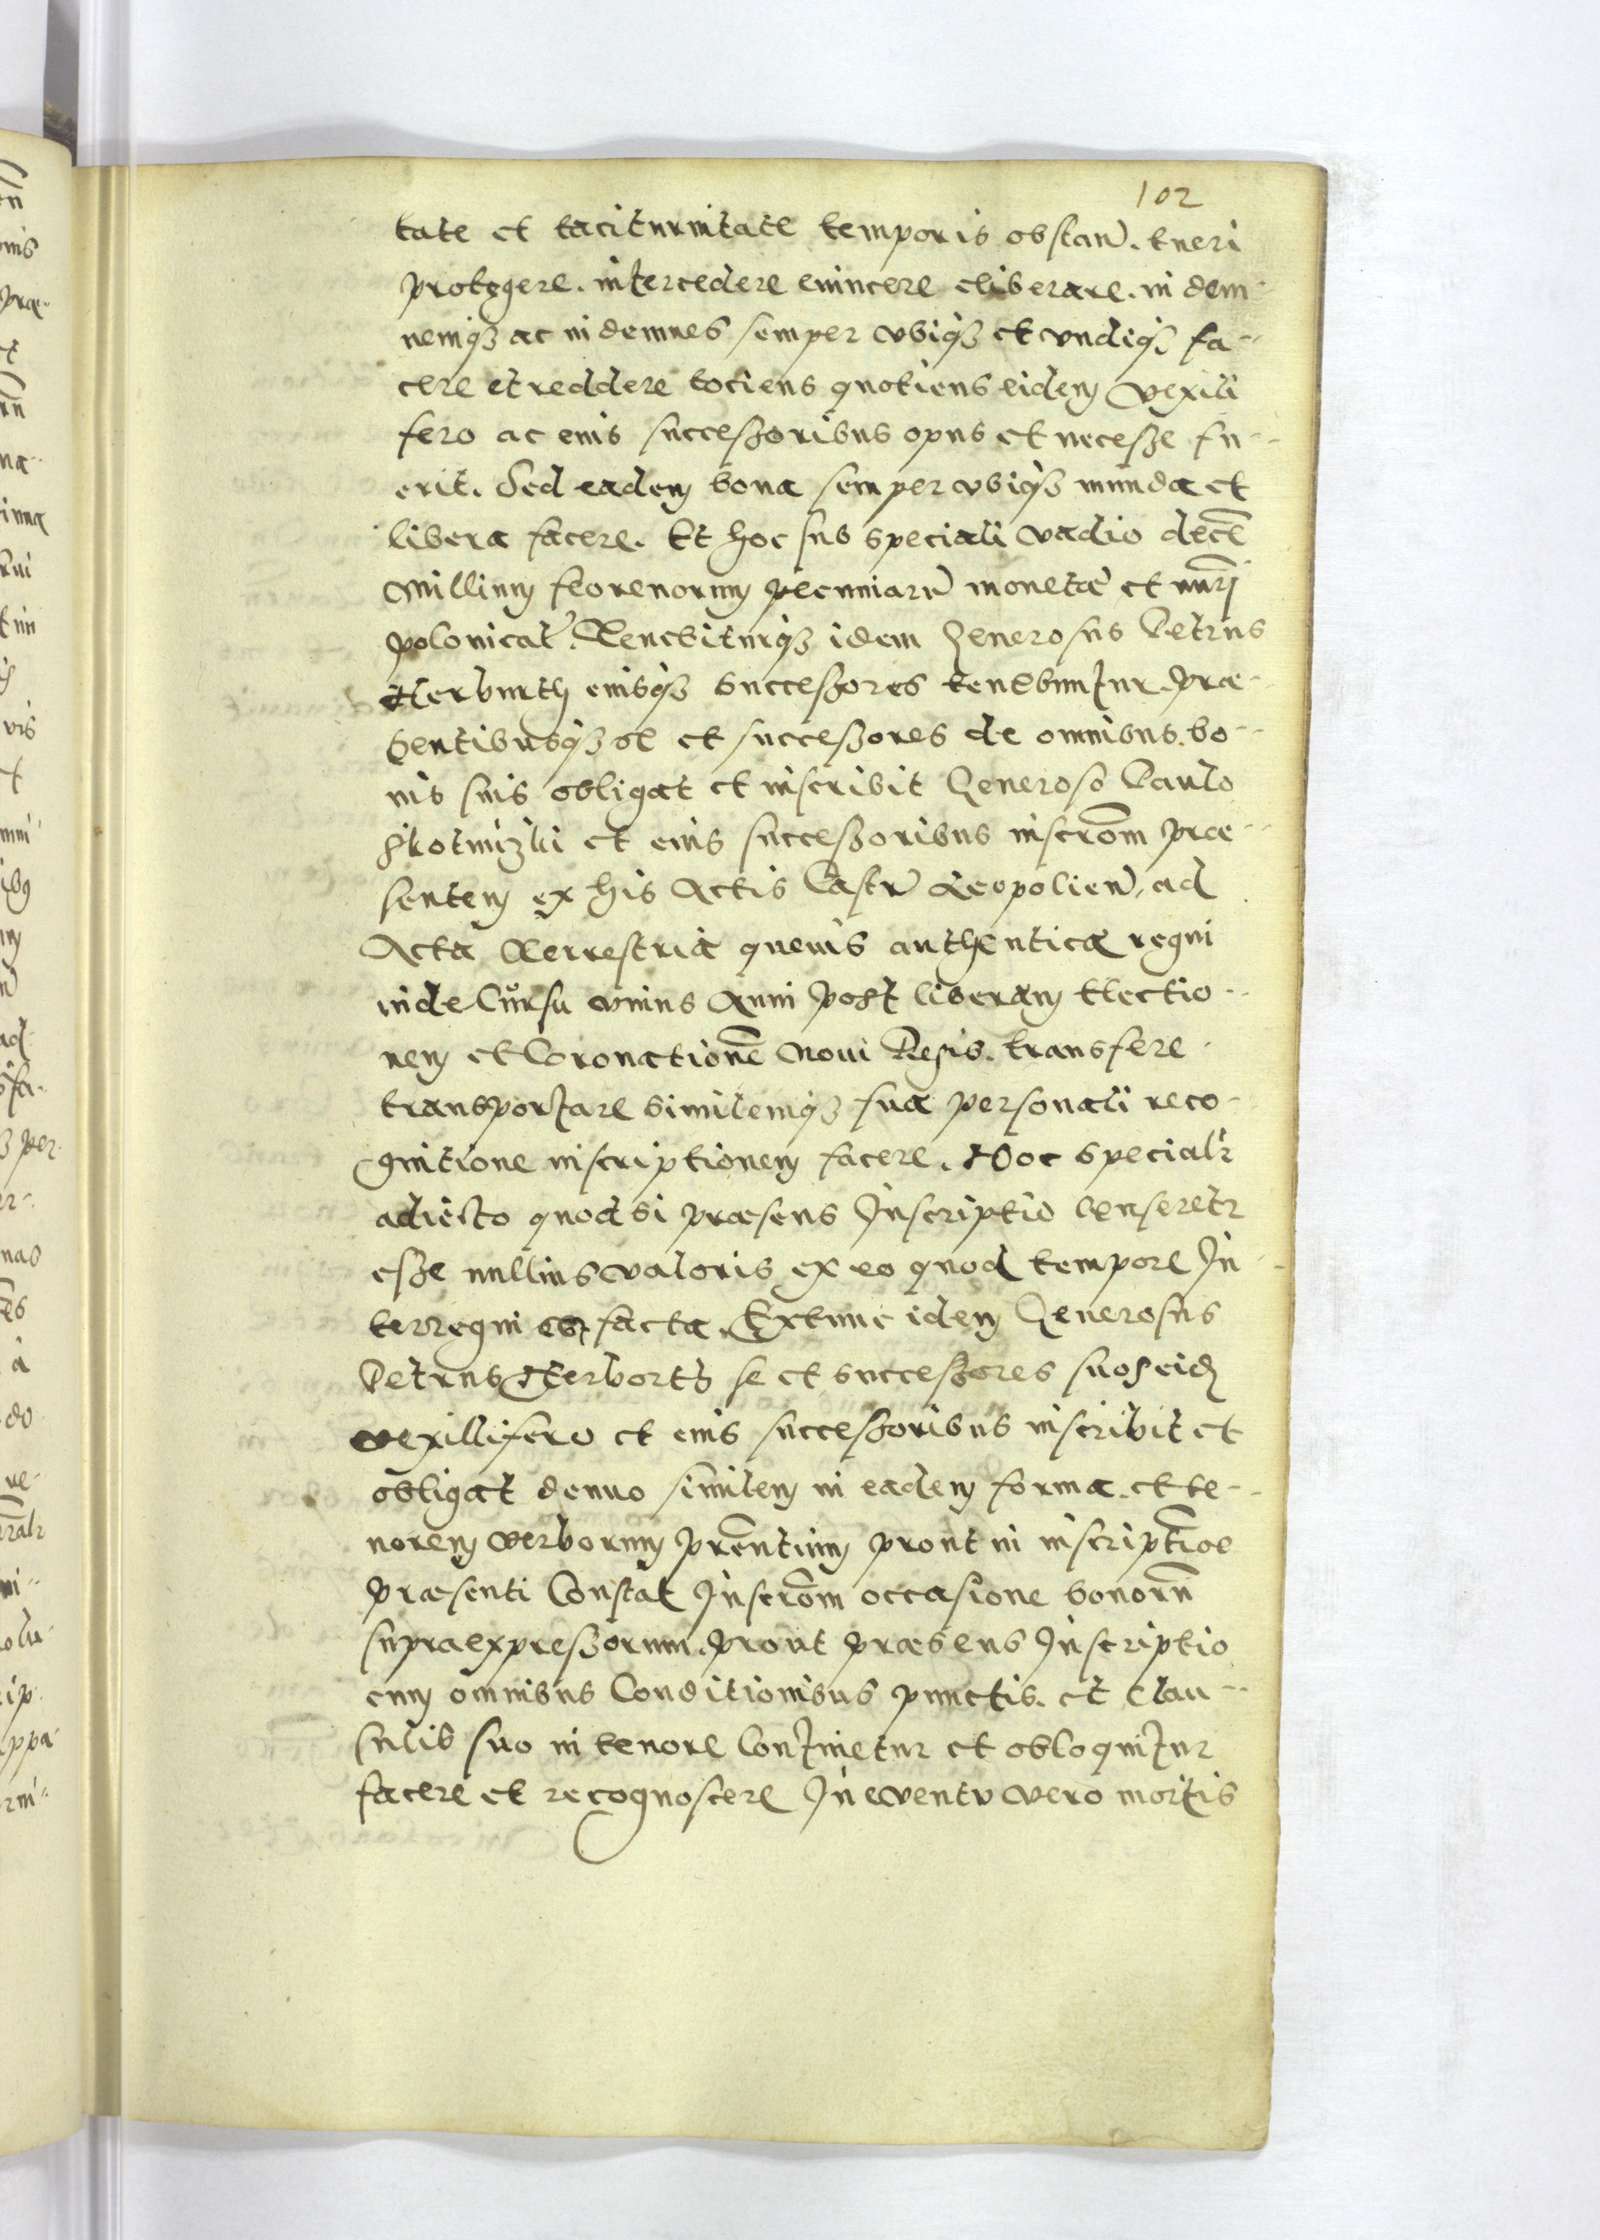 102
tate et taciturnitate temporis obstan. tueri
protegere. intercedere euincere eliberare. indem-
nemq3 ac indemnes semper vbiq3 et vndiq3 fa-
cere et reddere tociens quotiens eidem Vexilli
fero ac eius successoribus opus et necesse fu-
erit. Sed eadem bona semper vbiq3 munda et
libera facere. Et hoc sub speciali vadio decē
Millium florenorum pecuniarū monetæ et nūri
polonicat. Tenebiturq3 idem Generosus Petrus
Herburth eiusq3 successores tenebuntur. præ-
sentibusq3 se et successores de omnibus bo-
nis suis obligat et inscribit Generoso Paulo
et eius successoribus inscrōm præ-
sentem ex his Actis Castrn Leopolien. ad
Acta Terrestria queuis authentica regni
inde Cursu vnius Anni post liberam Electio-
nem et Coronationē Noui Regis. transfere
transportare similemq3 sua personali reco-
gnitione inscriptionem facere. Hoc specialr
adiecto quod si præsens Inscriptio Censeretr
esse nullius valoris ex eo quod tempore In-
terregni est facta. Extunc idem Generosus
Petrus Herborth se et successores suos eid
vexillifero et eius successoribus inscribit et
obligat denuo similem in eadem forma. et te-
norem verborum prēntium prout in inscriptioe
præsenti Constat Inscrōm occasione bonorū
supraexpressorum. prout præsens Inscriptio
cum omnibus Conditionibus punctis. et Clau-
sulis suo in tenore Continetur et obloquitur
facere et recognoscere In eventu vero mortis